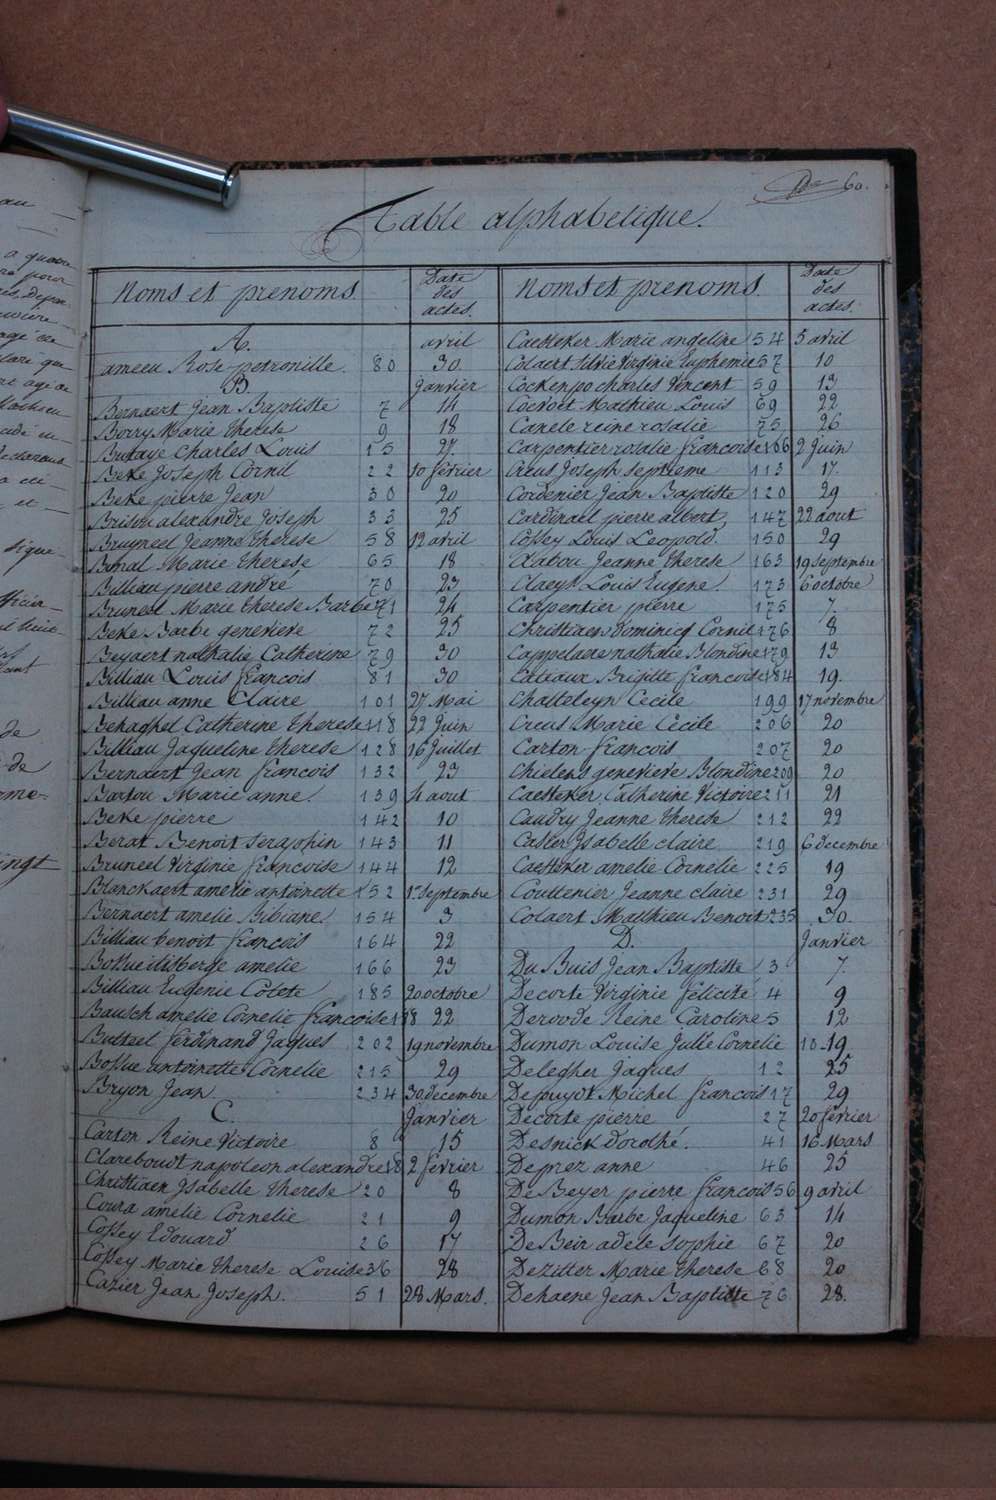 60.
Table alphabetique.
Noms et prenoms
Date des actes.
avril
A.
ameeu Rose petronille. 80 30.
B. Janvier
Bernaert Jean Baptiste 7 14
Borry Marie therese 9 18
Butaye Charles Louis 15 27.
Beke Joseph Cornil 22 10 février
Beke pierre Jean 30 20
Brisou alexandre Joseph 33 25
Bruyneel Jeanne therese 58 12 avril
Bonal Marie therese 65 18
Billiau pierre andré 70 23
Bruneel Marie therese Barbe 71 24
Beke Barbe genevieve 72 25
Beyaert nathalie Catherine 79 30
Billiau Louis francois 81 30
Billiau anne Claire 101 27 Mai
Behaghel Catherine therese 118 22 Juin
Billiau Jaqueline therese 128 16 Juillet
Bernaert Jean francois 132 23
Bartou Marie anne. 139 4 aout
Beke pierre 142 10
Berat Benoit seraphin 143 11
Bruneel Virginie francoise 144 12
Blanckaert amelie antoinette 152 1er Septembre
Bernaert amelie Bibiane 154 3
Billiau benoit francois 164 22
Bossue amelie 166 23
Billiau Eugenie Colete 185 20 octobre
Bausch amelie Cornelie francoise 188 22
Butteel ferdinand Jaques 202 19 novembre
Bossue antoinette Cornelie 215 29
Bryon Jean 234 30 decembre
C. Janvier
Carton Reine Victoire 8 15
Clareboudt napoleon alexandre 18 2 février
Christiaen Isabelle therese 20 8
Coura amelie Cornelie 21 9
Cossey Edouard 26 17
Cossey Marie therese Louise 36 28
Cazier Jean Joseph. 51 28 Mars.
Noms et prenoms.
Date des actes.
Caesteker Marie angeline 54 5 avril
Colaert Silvie Virginie Euphemie 57 10
Cockenpo charles Vincent 59 13
Cocvoit Mathieu Louis 69 22
Canele reine rosalie 75 26
Carpentier rosalie francoise 106 2 Juin
Creus Joseph septieme 113 17.
Cordenier Jean Baptiste 120 29
Cardinael pierre albert, 147 22 aout
Cossey Louis Leopold. 150 29
Clabou Jeanne therese 163 19 Septembre
Claeys Louis Eugene. 173 6 octobre
Carpentier pierre 175 7.
Christiaen Dominicq Cornil 176 8
Cappelaere nathalie Blondine 179 13
Cateaux Brigitte francoise 184 19.
Chatteleyn Cecile 199 17 novembre
Creus Marie Cecile 206 20
Carton francois 207 20
Chielens genevieve Blondine 209 20
Caesteker Catherine Victoire 211 21
Caudry Jeanne therese 212 22
Casier Isabelle claire 219 6 decembre
Caesteker amelie Cornelie 225 19
Couttenier Jeanne claire 231 29
Colaert Mathieu Benoit 235 30.
D. Janvier
Du Buis Jean Baptiste 3 7.
Decorte Virginie félicité 4 9
Dervode Reine Caroline 5 12
Dumon Louise Julie Cornelie 10 19
Delegher Jaques 12 25
Depuydt Michel francois 17 29
Decorte pierre 27 20 février
Desnick dorothé. 41 16 Mars
Deprez anne 46 25
De Beyer pierre francois 56 9 avril
Dumon Barbe Jaqueline 63 14
De Beir adele sophie 67 20
Dezitter Marie therese 68 20
Dehaene Jean Baptiste 76 28.